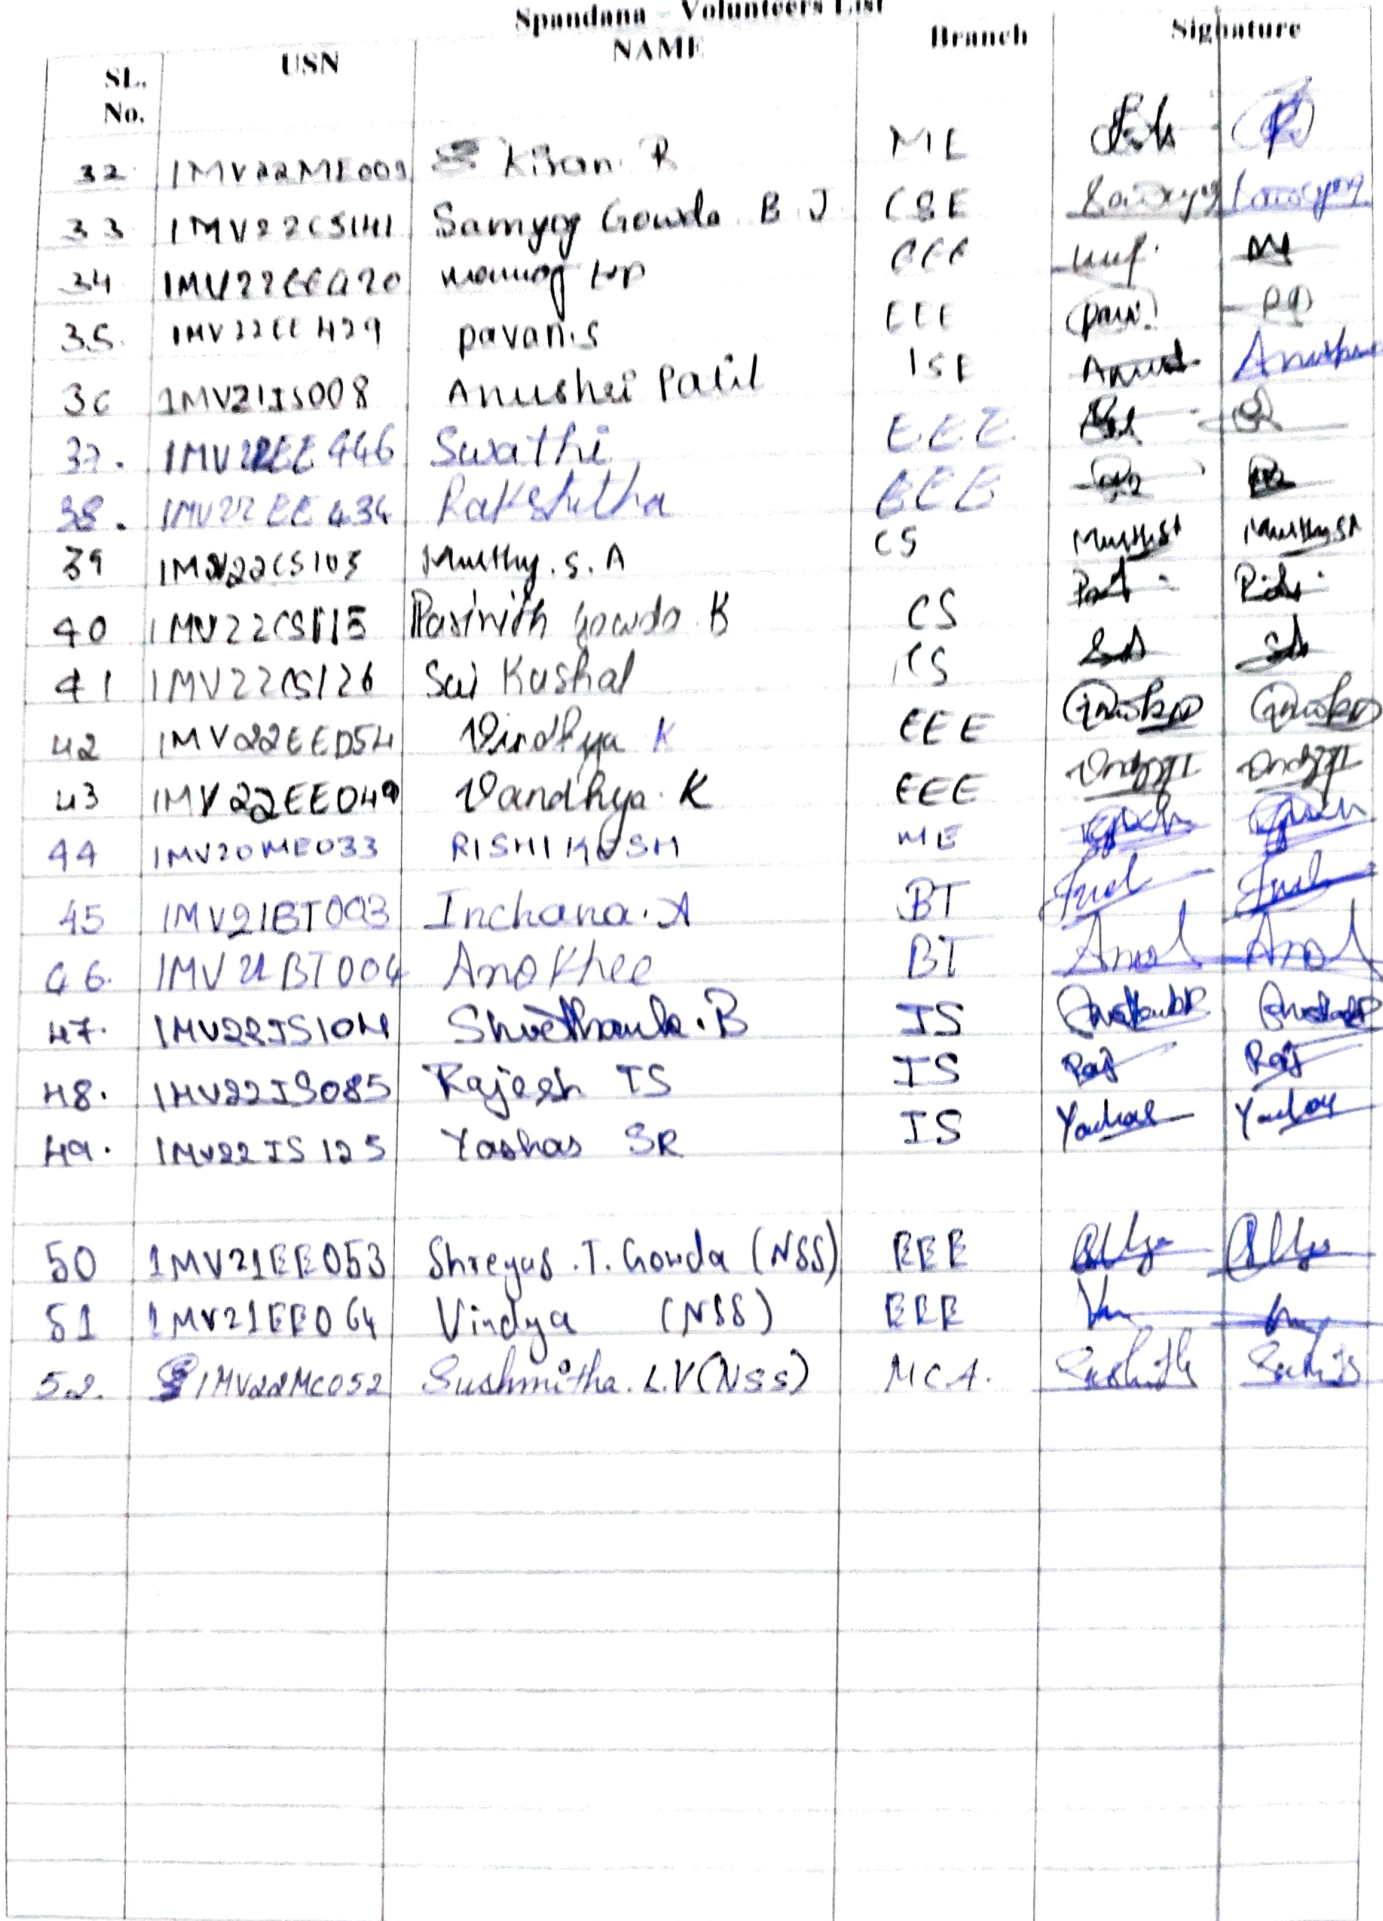 Spandana - Volunteers List
SL. No. USN NAME Branch Signature
32 1MV22ME009 Kiran R ME
33 1MV22CS141 Samyog Gowda B J CSE
34 1MV22EE020 EEE
35. 1MV22EE429 pavan.s EEE
36 1MV21IS008 Anushri Patil ISE
37. 1MV22EE446 Swathi EEE
38. 1MV22EE434 Rakshitha EEE
39 1MV22CS103 Murthy. S. A CS Murthy SA Murthy SA
40 1MV22CS115 gowda B CS
41 1MV22CS126 Sai Kushal CS
42 1MV22EE054 Vindhya K EEE
43 1MV22EE049 Vandhya. K EEE
44 1MV20ME033 RISHIKESH ME
45 1MV21BT003 Inchana. A BT
46. 1MV21BT004 Anokhee BT
47. 1MV22IS104 .B IS
48. 1MV22IS085 Rajesh TS IS Raj Raj
49. 1MV22IS125 Yashas SR IS Yashas
50 1MV21EE053 Shreyas .T. Gowda (NSS) EEE
51 1MV21EE064 Vindya (NSS) EEE
52. 1MV22MC052 Sushmitha. L.V (NSS) MCA.